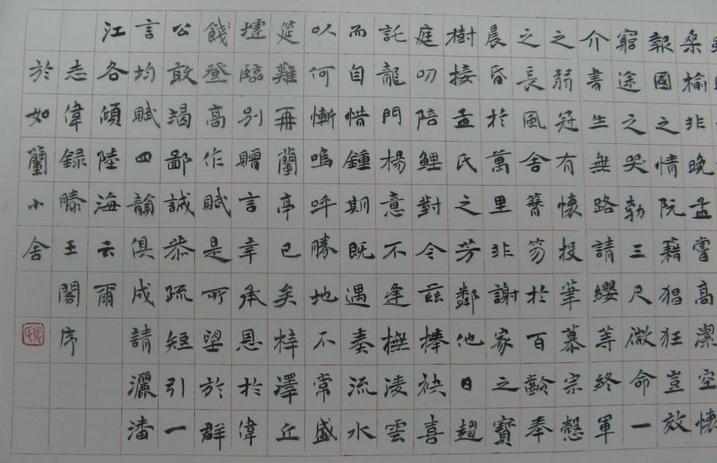 桑榆非晚孟嘗高潔空懷
報國之情阮藉猖狂豈放
窮途之哭勃三尺微命一
介書生無路請纓等終軍
之弱冠有懷投筆慕宗慤
之長風舍簪笏於百齡奉
晨昏於萬里非謝家之寶
樹接孟氏之芳鄰他日趨
庭叨陪鯉對今茲捧袂喜
託龍門楊意不逢撫凌雲
而自惜鍾期既遇奏流水
以何慚嗚呼勝地不常盛
筵難再蘭亭已矣梓澤丘
墟臨別贈言幸承恩於偉
餞登高作賦是所望於群
公敢竭鄙誠恭疏短引一
言均賦四韻俱成請灑潘
江各傾陸海云爾
志偉録滕王閣序
於如蘭小舍